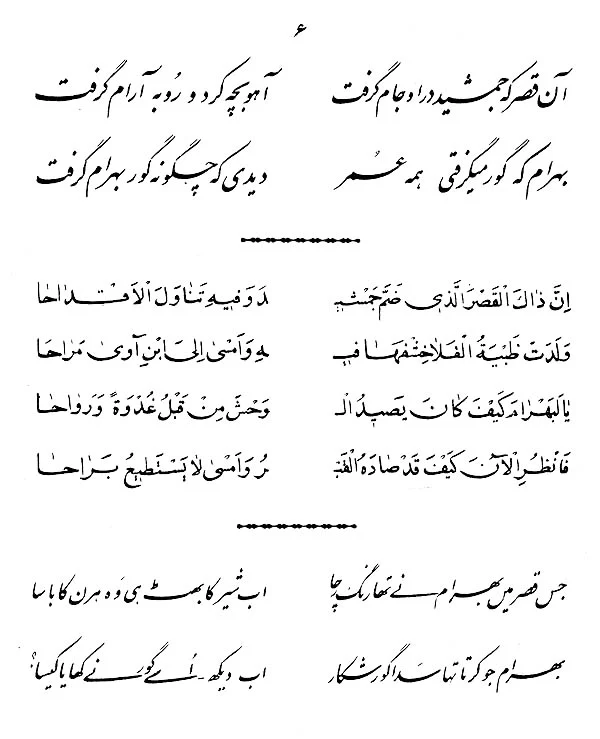 ۶
آن قصر که جمشید در او جام گرفت آهو بچه کرد و روبه آرام گرفت
بهرام که گور میگرفتی همه عمر دیدی که چگونه گور بهرام گرفت
اِنَّ ذاكَ الْقَصْرَ الَّذي ضَمَّ جَمْشيـ ـدَ وَفيهِ تَناوَلَ الْاَقْداحا
وَلَدَتْ ظَبْيَةُ الْفَلا خِشْفَها فيـ ـهِ وَاَمْسى اِلَى ابْنِ آوى مَراحا
يا لَبَهْرامَ كَيْفَ كانَ يَصيدُ الْـ ـوَحْشَ مِنْ قَبْلُ غُدْوَةً وَرَواحا
فَانْظُرِ الْآنَ كَيْفَ قَدْ صادَهُ القَبْـ ـرُ وَاَمْسى لا يَسْتَطيعُ بَراحا
جس قصر میں بھرام نے تھا رنگ رچا اب شیر کا بھٹ ہی وہ ہرن کا باسا
بھرام جو کرتا تہا سدا گور شکار اب دیکھ اُسے گور نے کھایا کیسا؟